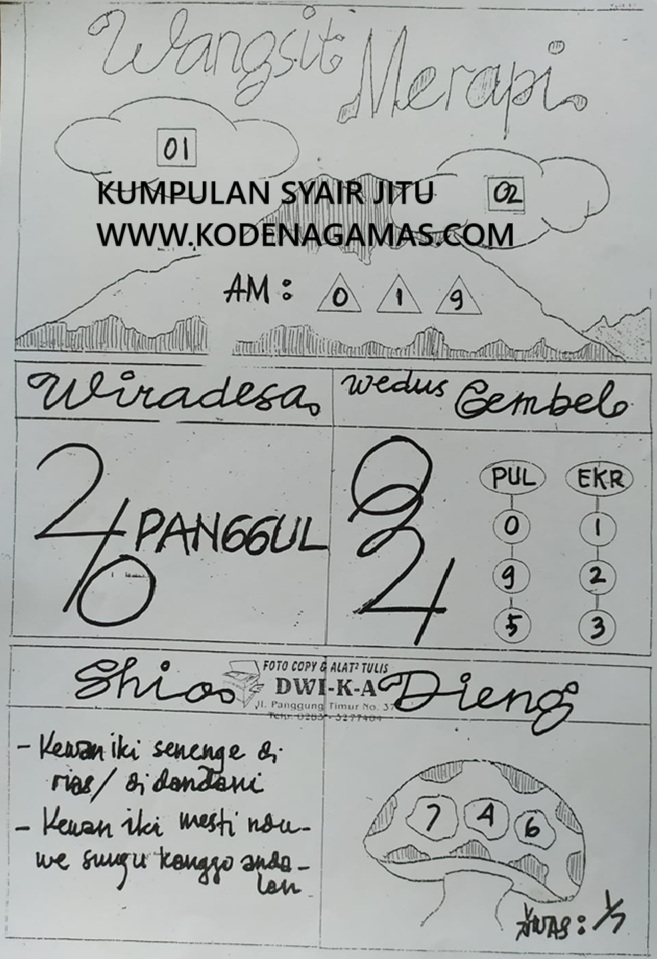 Wangsit Merapi
01
02
KUMPULAN SYAIR JITU
WWW.KODENAGAMAS.COM
AM : 0 1 9
Wiradesa
Wedus Gembel
PANGGUL
PUL EKR
0 1
9 2
5 3
FOTO COPY & ALAT² TULIS
DWI-K-A
Jl. Panggung Timur No. 37
Shio
Dieng
- Kewan iki senenge di
rias/ di dandani
- Kewan iki mesti ndu-
we sungu kanggo anda-
lan
7 4 6
AWAS : 1/7